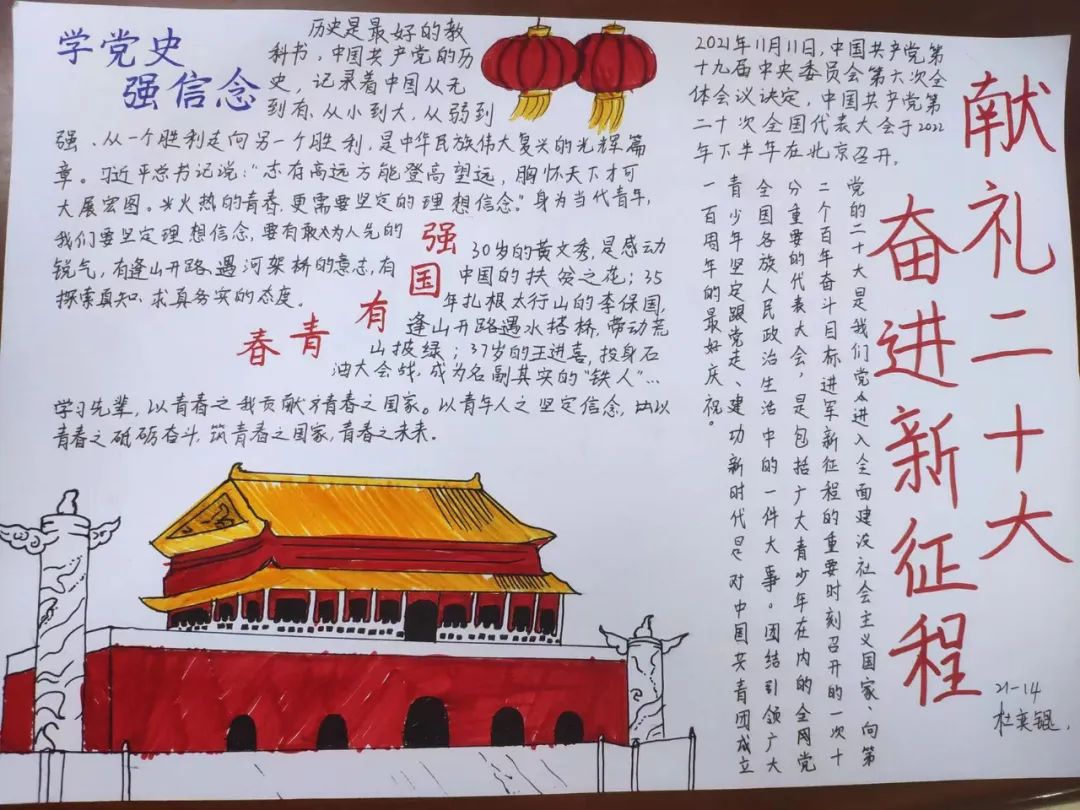 学党史
强信念
历史是最好的教
科书，中国共产党的历
史，记录着中国从无
到有、从小到大、从弱到
强、从一个胜利走向另一个胜利，是中华民族伟大复兴的光辉篇
章。习近平总书记说：“志存高远方能登高望远，胸怀天下才可
大展宏图。火热的青春，更需要坚定的理想信念。”身为当代青年，
我们要坚定理想信念，要有敢为人先的
锐气，有逢山开路、遇河架桥的意志，有
探索真知、求真务实的态度。
春青有国强
30岁的黄文秀，是感动
中国的扶贫之花；35
年扎根太行山的李保国，
逢山开路遇水搭桥，带动荒
山披绿；37岁的王进喜，投身石
油大会战，成为名副其实的“铁人”…
学习先辈，以青春之我贡献于青春之国家。以青年人之坚定信念，出以
青春之砥砺奋斗，筑青春之国家，青春之未来。
2021年11月11日，中国共产党第
十九届中央委员会第六次全
体会议决定，中国共产党第
二十次全国代表大会于2022
年下半年在北京召开。
献礼二十大
奋进新征程
党的二十大是我们党进入全面建设社会主义国家、向第
二个百年奋斗目标进军新征程的重要时刻召开的一次十
分重要的代表大会，是包括广大青少年在内的全网党
全国各族人民政治生活中的一件大事。团结引领广大
青少年坚定跟党走、建功新时代是对中国共青团成立
一百周年的最好庆祝。
21-14
杜奕锟